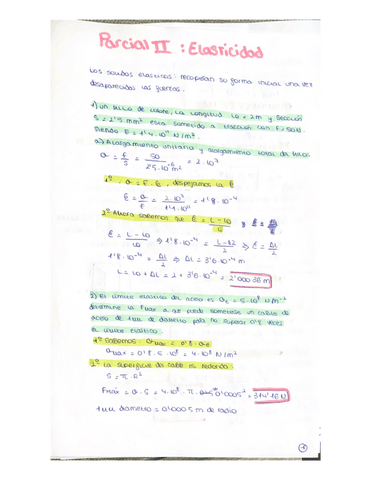 Parcial II : Elasticidad
Los solidos elasticos: recuperan su forma inicial una vez
desaparecidas las fuerzas.
1) Un hilo de cobre, de longitud L0 = 2m y sección
S = 2'5 mm² esta sometido a tracción con F = 50N.
Siendo E = 1'1·10¹¹ N/m².
a) Alargamiento unitario y alargamiento total del hilo.
σ = F/S = 50/2'5·10⁻⁶ m² = 2·10⁷
1º. σ = E·ε, despejamos la ε
ε = σ/E = 2·10⁷/1'1·10¹¹ = 1'8·10⁻⁴
2º Ahora sabemos que ε = L-L0/L0 y ε = Δl/2
ε = L-L0/L0 ⇒ 1'8·10⁻⁴ = L-2/2 ⇒ ε = Δl/2
1'8·10⁻⁴ = Δl/2 ⇒ Δl = 3'6·10⁻⁴ m
L = L0 + Δl = 2 + 3'6·10⁻⁴ = 2'00036 m
2) El limite elastico del acero es σe = 5·10⁸ N/m⁻²
Determine la Fmax a que puede someterse un cable de
acero de 1mm de diametro para no superar 0'8 veces
el limite elástico.
1º Sabemos: σmax = 0'8·σe
σmax = 0'8·5·10⁸ = 4·10⁸ N/m²
2º La superficie del cable es redonda
S = π·R²
Fmax = σ·S = 4·10⁸·π·0'0005² = 314'16 N
1mm diametro = 0'0005 m de radio